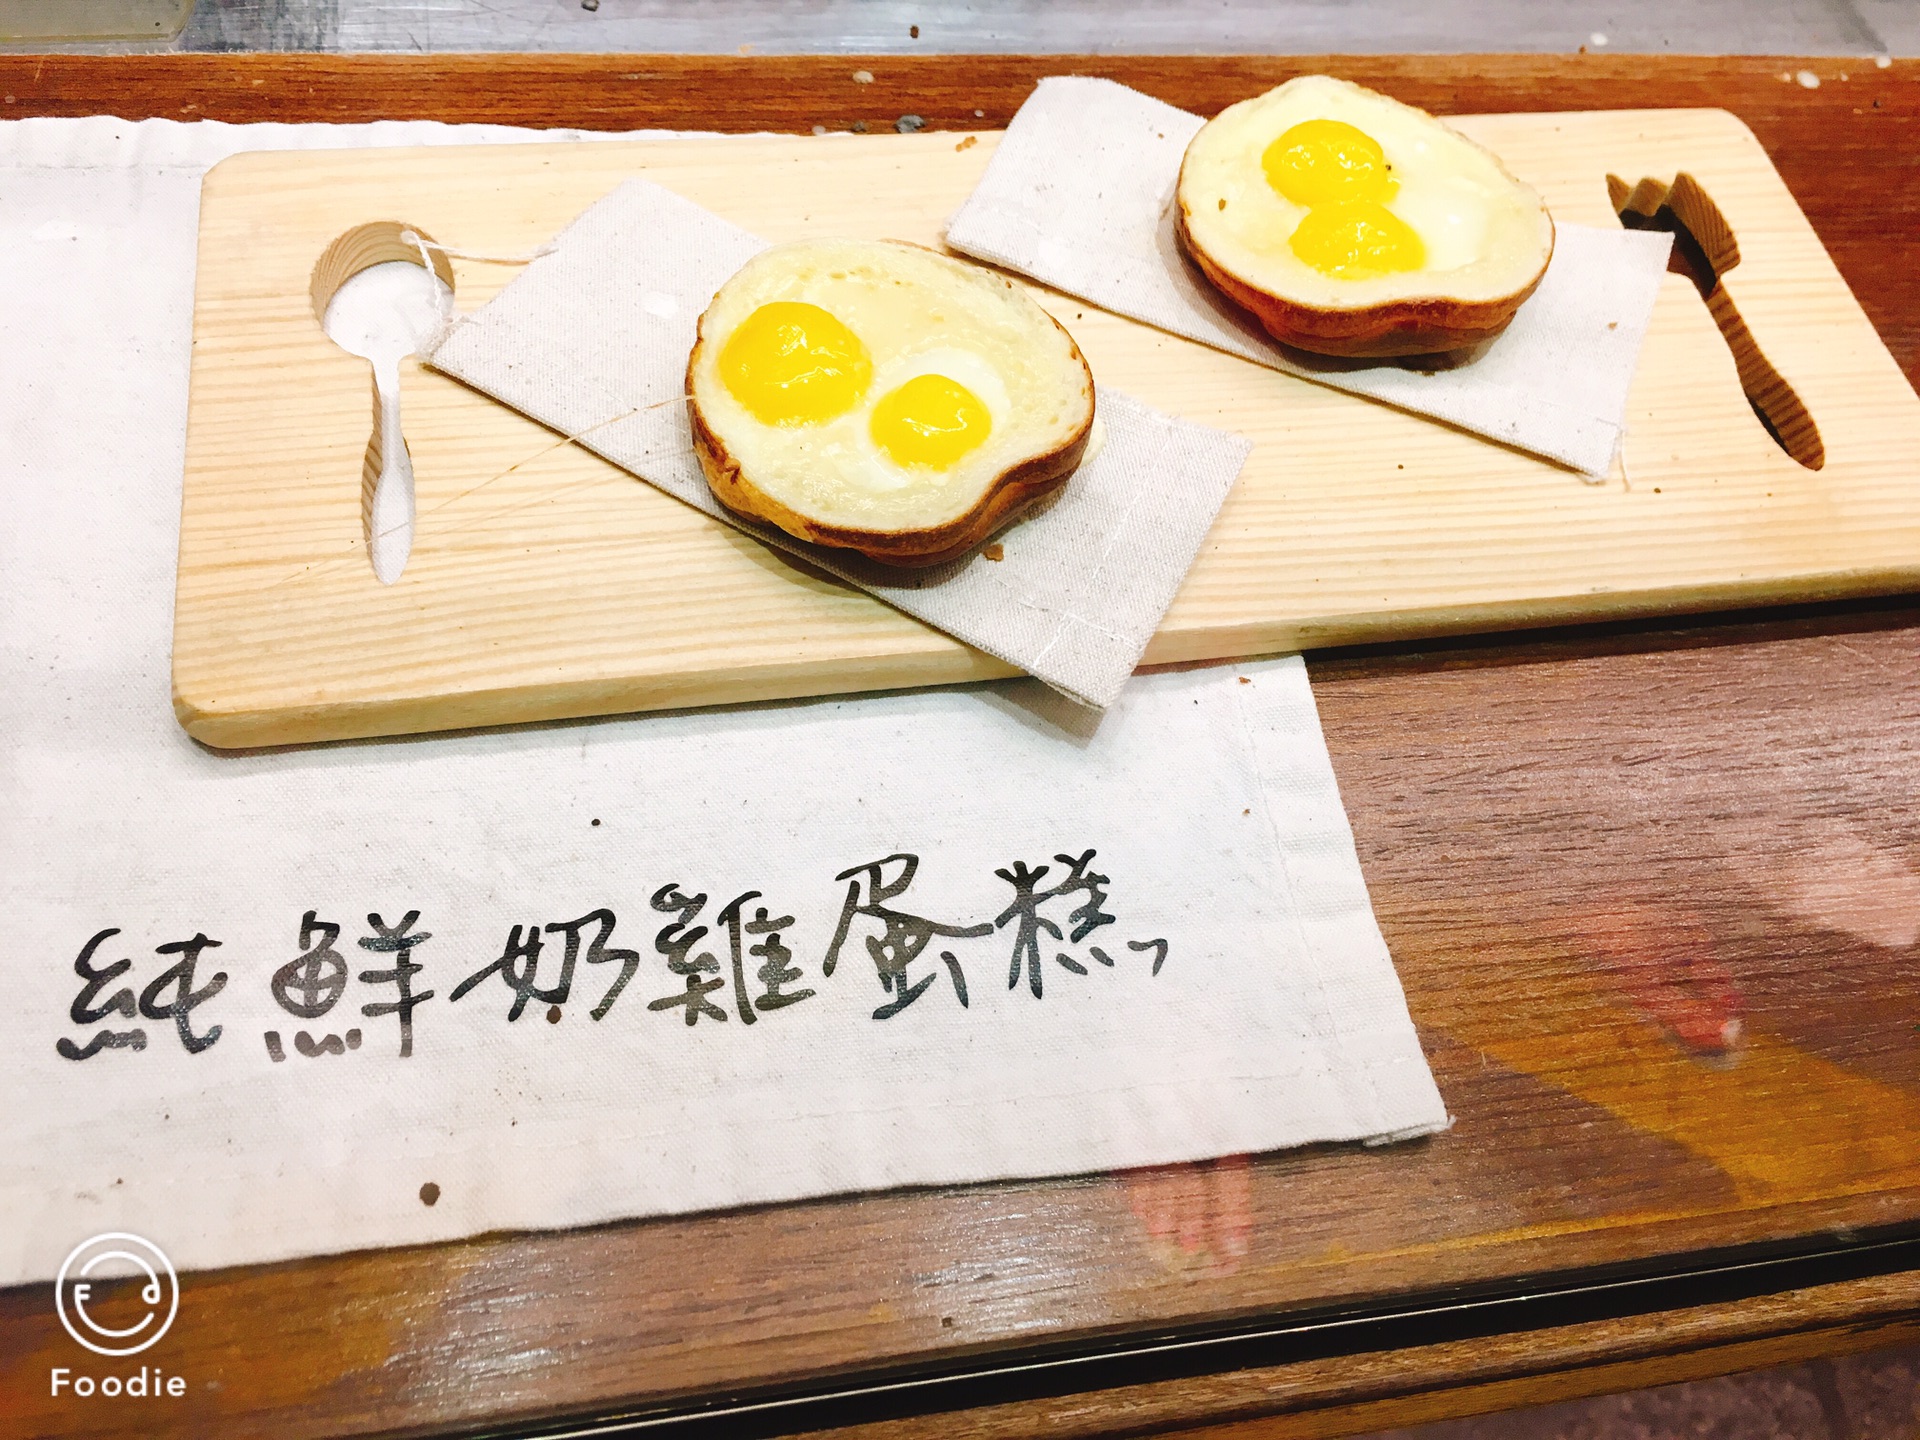 純鮮奶雞蛋糕
Foodie